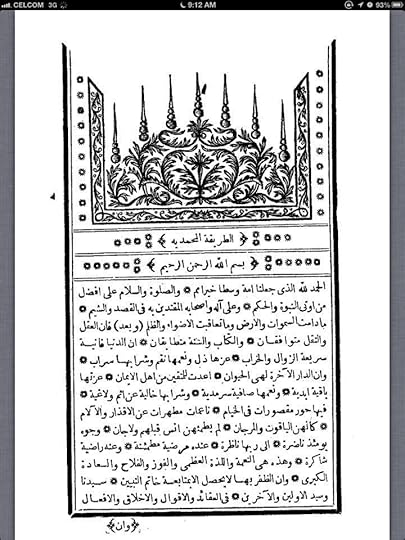 CELCOM 3G 9:12 AM 93%
الطريقة المحمديه
بسم الله الرحمن الرحيم
الحمد لله الذى جعلنا امة وسطا خير امم والصلوة والسلام على افضل
من اوتى النبوة والحكم وعلى آله واصحابه المقتدين به فى القصد والشيم
مادامت السموات والارض وما تعاقبت الاضواء والظلم (وبعد) فان العقل
والنقل متوافقان والكتاب والسنة متطابقان ان الدنيا فانية
سريعة الزوال والخراب عزها ذل ونعمها نقم وشرابها سراب
وان الدار الآخرة لهى الحيوان اعدت للمتقين من اهل الايمان عزتها
باقية ابدية ونعمها صافية سرمدية وشرابها خالية عن اثم ولاغية
فيها حور مقصورات فى الخيام ناعمات مطهرات عن الاقذار والآلام
كانهن الياقوت والمرجان لم يطمثهن انس قبلهم ولا جان وجوه
يومئذ ناضرة الى ربها ناظرة عنده مرضية مطمئنة وعنه راضية
شاكرة وهذه هى النعمة واللذة العظمى والفوز والفلاح والسعادة
الكبرى وان الظفر بها لا يحصل الا بمتابعة خاتم النبيين سيدنا
وسيد الاولين والآخرين فى العقائد والاقوال والاخلاق والافعال
وان